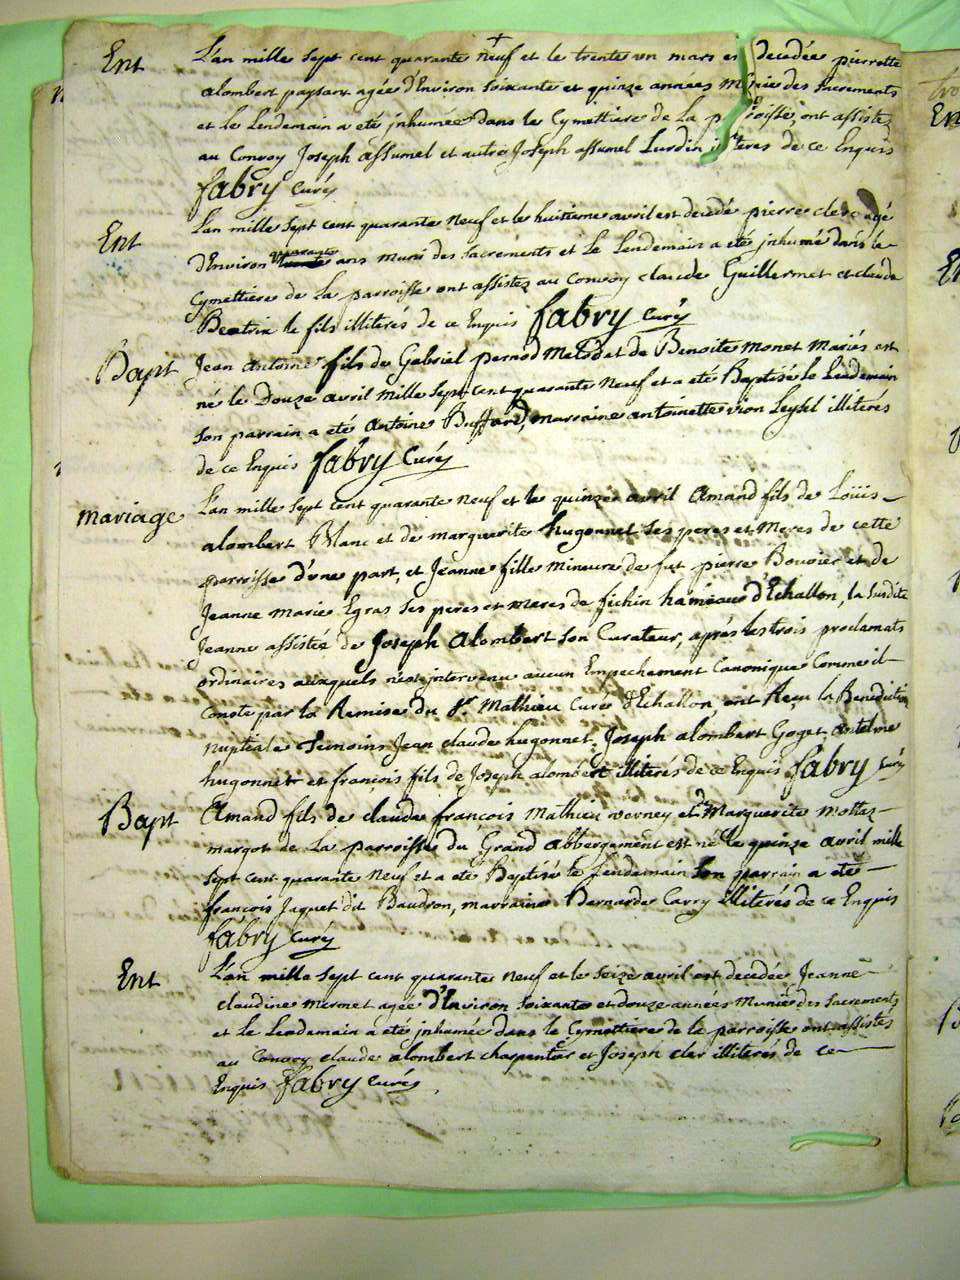 Ent L'an mille sept cent quarante neuf et le trente un mars est decedée pierrette
alombert paysan agée d'Environ soixante et quinze années Munie des sacrements
et le Lendemain a eté jnhumée dans le Cymettiere de La parroisse, ont assistez
au Convoy Joseph assumel et autre Joseph assumel Lurdin illiteres de ce Enquis
fabry Curé
Ent L'an mille sept cent quarante neuf et le huitieme avril est decedé pierre clerc agé
d'Environ quarante ans muni des sacrements et Le Lendemain a eté jnhumé dans le
Cymettiere de La parroisse ont assistez au Convoy claude Guillermet et claude
Beatrix le fils illiterés de ce Enquis fabry Curé
Bapt Jean antoine fils de Gabriel pernod et de Benoite Monet Mariés est
né le Douze avril mille sept cent quarante neuf et a eté Baptisé le Lendemain
son parrain a eté antoine Buffard, marraine antoinette vion Leysel illiterés
de ce Enquis fabry Curé
Mariage L'an mille sept cent quarante neuf et le quinze avril Amand fils de Loüis
alombert Blanc et de marguerite hugonnet ses peres et Meres de cette
parroisse d'une part, et Jeanne fille mineure de fut pierre Bouvier et de
Jeanne Marie Egras ses peres et meres de fichin hameau d'Echallon, la susdite
Jeanne assistée de Joseph alombert son Curateur, après les trois proclamats
ordinaires auxquels n'est jntervenu aucun Empechement Canonique Comme il
Conste par la Remise du Sr Mathieu Curé d'Echallon, ont Reçu la Benediction
Nuptiale Temoins Jean claude hugonnet, Joseph alombert Goget, antelme
hugonnet et françois fils de Joseph alombert illiteres de ce Enquis fabry Curé
Bapt Amand fils de claude françois Mathieu verney et de Marguerite Mottaz
margot de La parroisse du Grand abbergement est né le quinze avril mille
sept cent quarante neuf et a eté Baptisé le Lendemain son parrain a eté
françois Jaquet dit Baudron, marraine Bernarde Carry illiterés de ce Enquis
fabry Curé
Ent L'an mille sept cent quarante neuf et le seize avril est decedée Jeanne
claudine mermet agée d'Environ soixante et douze années Munie des sacrements
et Le Lendemain a eté jnhumée dans le Cymettiere de la parroisse ont assistés
au Convoy claude alombert charpentier et Joseph cler illiterés de ce
Enquis fabry Curé